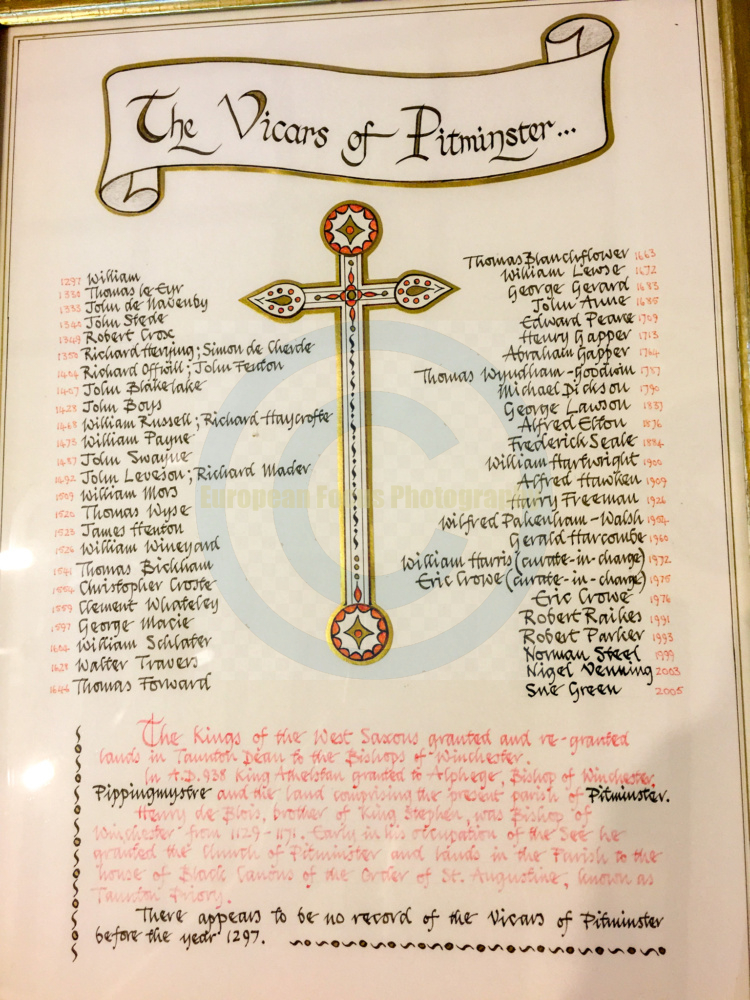 The Vicars of Pitminster...
1297 William
1330 Thomas le Eyr
1335 John de Navenby
1340 John Stede
1349 Robert Crox
1350 Richard Herping; Simon de Cherde
1404 Richard Offrill; John Fenton
1407 John Blakelake
1428 John Boys
1468 William Russell; Richard Haycrofte
1475 William Payne
1487 John Swayne
1492 John Leveson; Richard Mader
1509 William Mors
1520 Thomas Wyse
1523 James Henton
1526 William Wineyard
1541 Thomas Bickham
1554 Christopher Croste
1559 Clement Whateley
1597 George Macie
1604 William Schlater
1628 Walter Travers
1644 Thomas Forward
Thomas Blanchflower 1663
William Lewse 1672
George Gerard 1683
John Anne 1685
Edward Peare 1709
Henry Gapper 1713
Abraham Gapper 1764
Thomas Wyndham-Goodwin 1787
Michael Dickson 1790
George Lawson 1837
Alfred Elton 1876
Frederick Seale 1884
William Hartwright 1900
Alfred Hawken 1909
Harry Freeman 1926
Wilfred Pakenham-Walsh 1954
Gerald Harcombe 1960
William Harris (curate-in-charge) 1972
Eric Crowe (curate-in-charge) 1975
Eric Crowe 1976
Robert Raikes 1991
Robert Parker 1993
Norman Steel 1999
Nigel Venning 2003
Sue Green 2005
European Focus Photography
The Kings of the West Saxons granted and re-granted
lands in Taunton Dean to the Bishops of Winchester.
In A.D. 938 King Athelstan granted to Alphege, Bishop of Winchester,
Pippingmystre and the land comprising the present parish of Pitminster.
Henry de Blois, brother of King Stephen, was Bishop of
Winchester from 1129-1171. Early in his occupation of the See he
granted the Church of Pitminster and lands in the Parish to the
house of Black Canons of the Order of St. Augustine, known as
Taunton Priory.
There appears to be no record of the Vicars of Pitminster
before the year 1297.